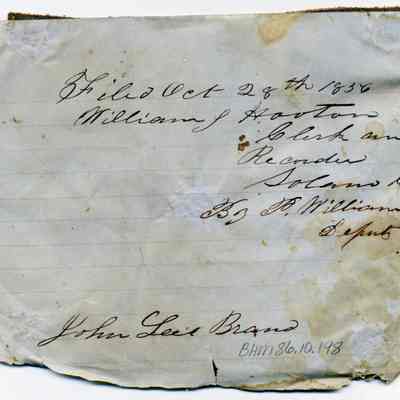 Filed Oct 28th 1856
William J Hooton
Clerk an
Recorder
Solano
By P. William
Deput
John Brand
BHM 86.10.148